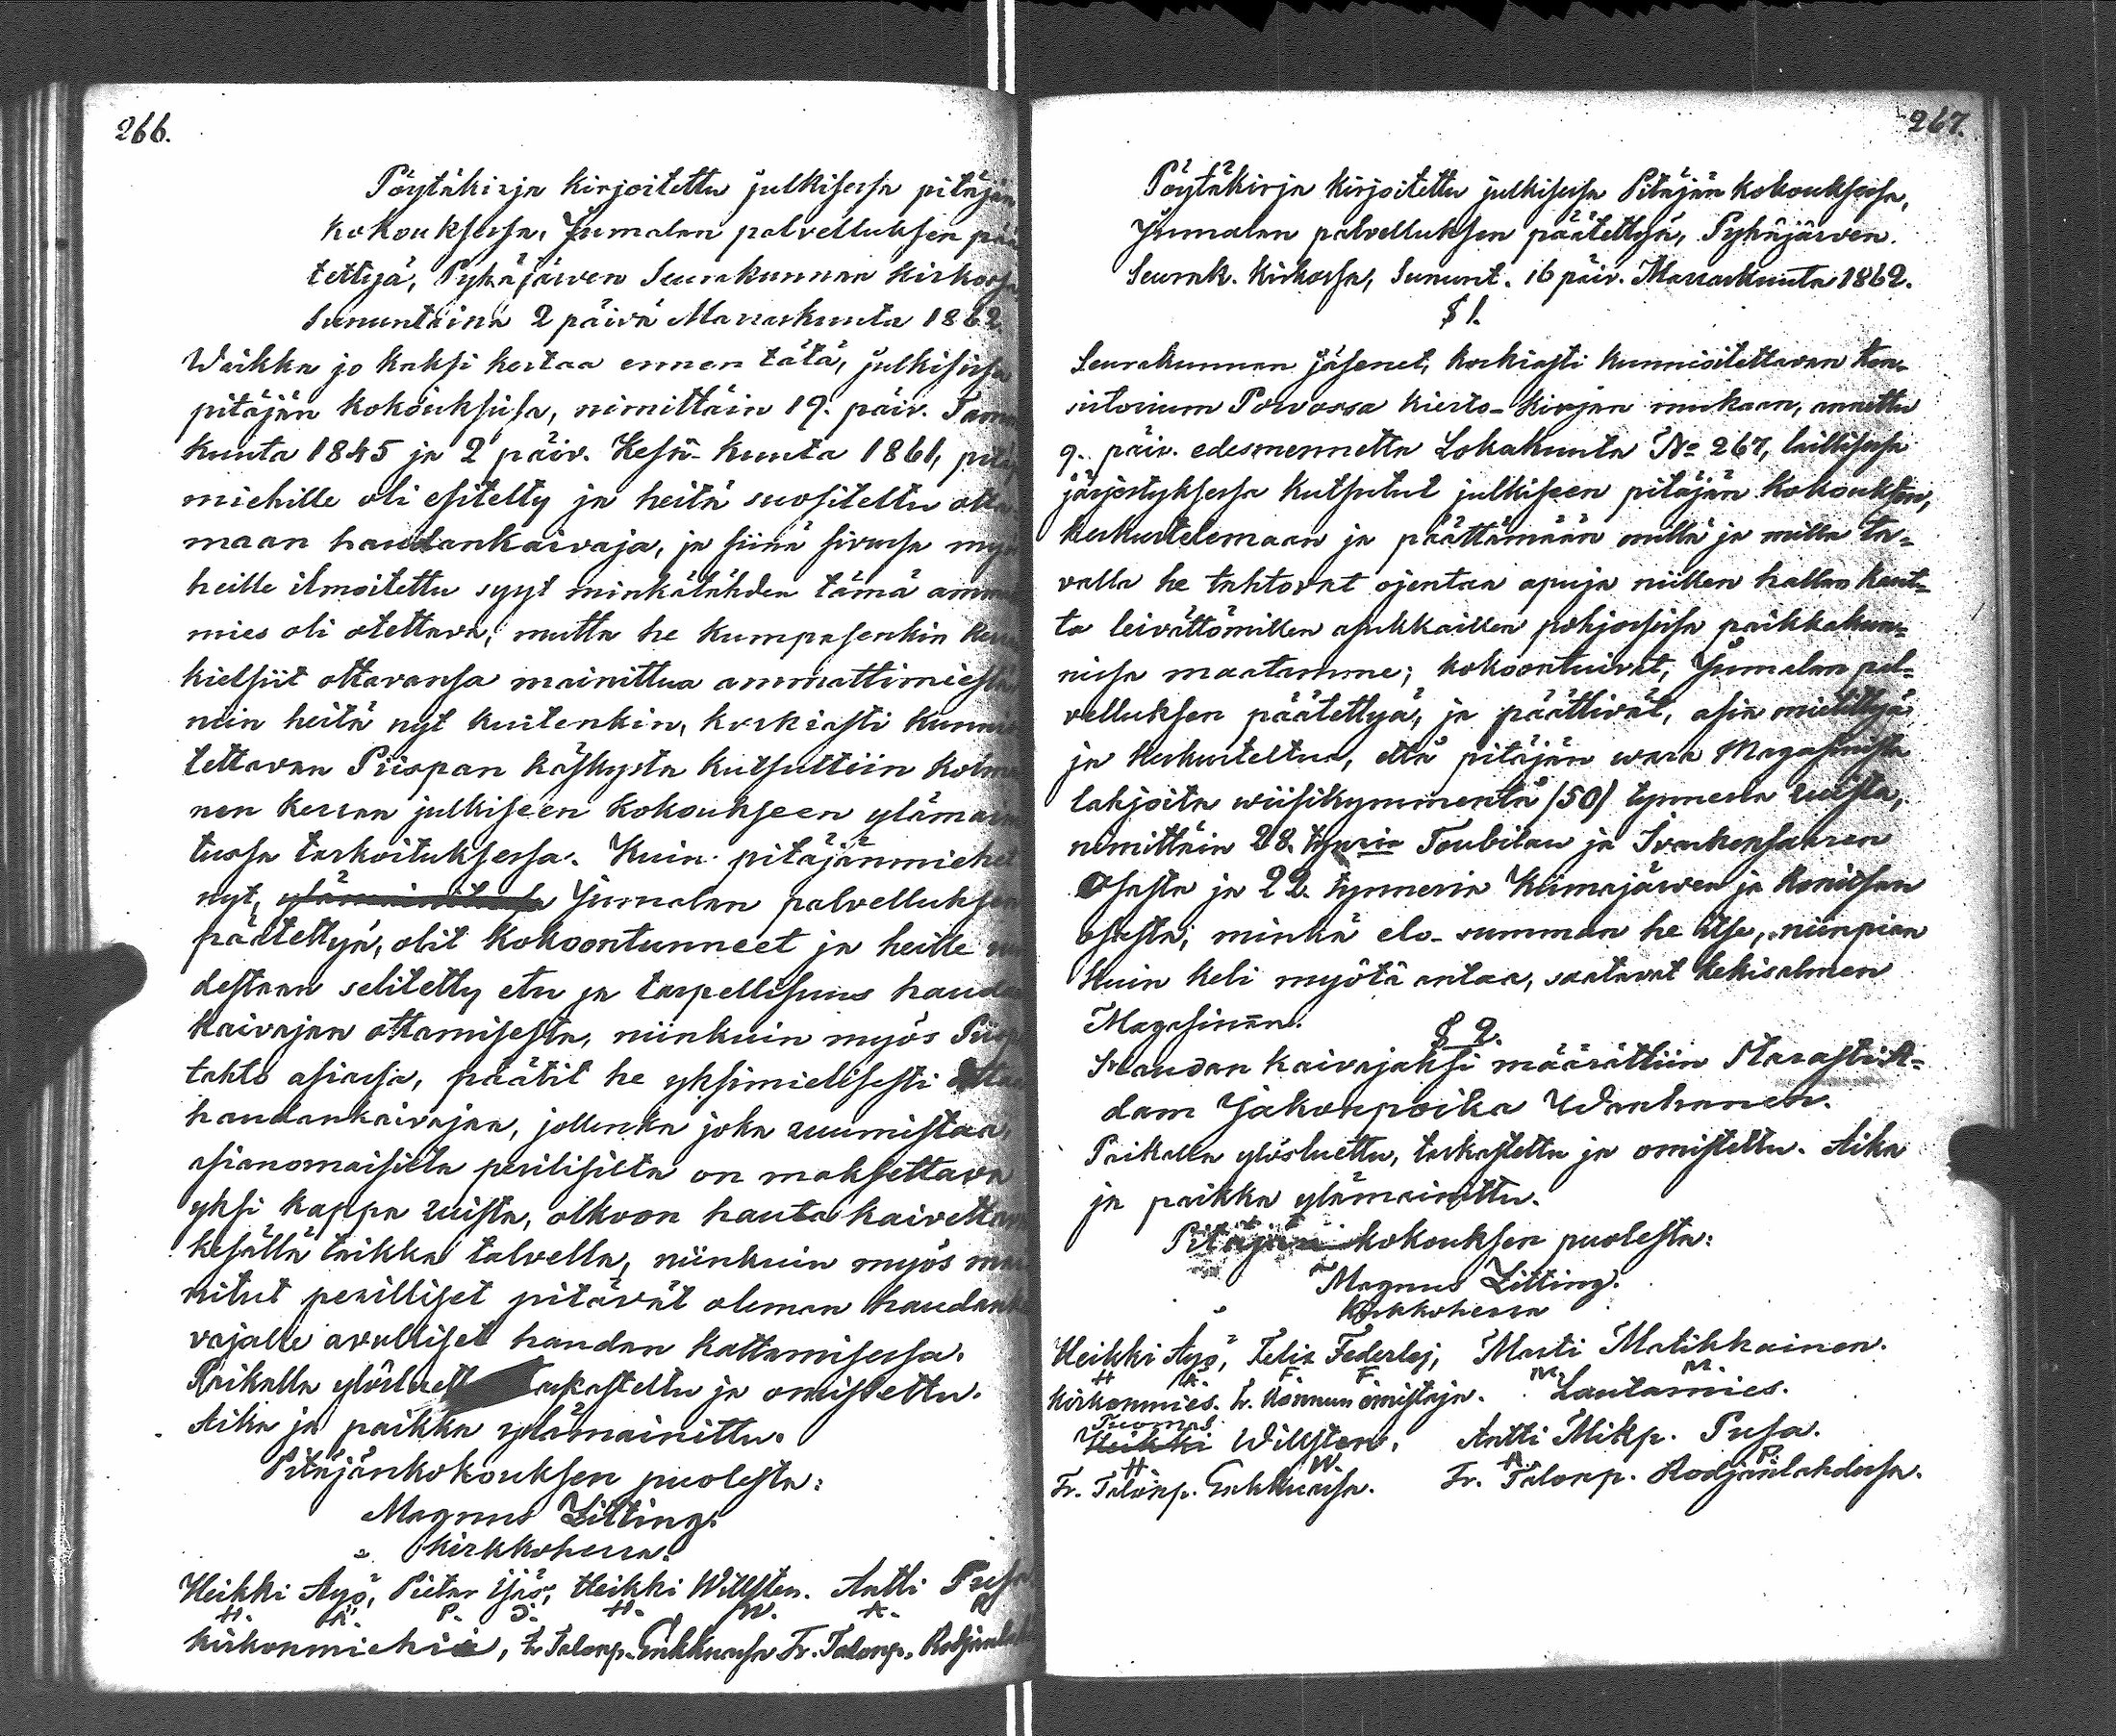 266.
Pöytäkirja kirjoitettu julkisessa pitäjän
kokouksessa, Jumalan palvelluksen pää
tettyä, Pyhäjärven Seurakunnan kirkossa
Sununtaina 2 päivä Marraskuuta 1862.
Waikka jo kaksi kertaa ennen tätä, julkisissa
pitäjän kokouksissa, nimittäin 19. päiv. Tam
kuuta 1845 ja 2 päiv. Kesä-kuuta 1861, pitäj
miehille oli esitelty ja heitä suositeltu otta
maan haudankaivaja, ja siinä sivussa myö
heille ilmoitettu syyt minkätähden tämä ammat
mies oli otettava, mutta he kumpasenkin ker
kielsiit ottavansa mainittua ammattimiestä
niin heitä nyt kuitenkin, korkiasti kunnioi
tettavan Piispan käskystä kutsuttiin kolma
nen kerran julkiseen kokoukseen ylämain
tussa tarkoituksessa. Kuin pitäjänmiehet
nyt, Jumalan palvelluksen
päätettyä, olit kokoontunneet ja heille
destaan selitetty etu ja tarpellisuus haudan
kaivajan ottamisesta, niinkuin myös Piisp
tahto asiassa, päätit he yksimielisesti otta
haudankaivajan, jollenka joka ruumistaa,
asianomaisilta perilisilta on maksettava
yksi kappa ruista, olkoon hauta kaivettava
kesällä taikka talvella, niinkuin myös mai
nitut perilliset pitävät oleman haudankai
vajalle avulliset haudan kattamisessa.
Paikalla ylösluett tarkastettu ja omistettu.
Aika ja paikka ylämainittu.
Pitäjänkokouksen puolesta:
Magnus Litting.
kirkkoherra.
Heikki Äyö, Pietar Ijäs, Heikki Willsten. Antti Pusa
H. Ä. P. I. H. W. A. P.
kirkonmiehiä, Fr. Talonp. Enkkuassa Fr. Talonp. Rodjanlah
267.
Pöytäkirja kirjoitettu julkisessa Pitäjän kokouksessa,
Jumalan palvelluksen päätettyä, Pyhäjärven.
Seurak. Kirkossa, Sununt. 16 päiv. Marraskuuta 1862.
§ 1.
Seurakunnan jäsenet, korkiasti kunnioitettavan kon-
sistorium Porvossa kierto-kirjan mukaan, annettu
9. päiv. edesmennettä Lokakuuta No 267, laillisessa
järjestyksessa kutsutut julkiseen pitäjän kokouksen,
keskustelemaan ja päättämään millä ja milla ta-
valla he tahtovat ojentaa apuja niillen hallan kaut-
ta leivättömillen asukkaillen pohjosissa paikkakun-
nissa maatamme; kokoontuivat, Jumalan pal-
velluksen päätettyä, ja päättivät, asia mietittyä
ja keskusteltua, että pitäjän wara Magasinista
lahjoita wiisikymmentä (50) tynneria ruista,
nimittäin 28. tynria Toubilan ja Svarkensaaren
Osasta ja 22. tynneria Kiimajärven ja Konitsan
osasta; minkä elo-summan he itse, niinpian
kuin keli myötä antaa, saatavat kekisalmen
Magasinen.
§ 2.
Haudan kaivajaksi määrättiin Starastist-
dam Jakonpoika Waahanen.
Paikalla ylösluettu, tarkastettu ja omistettu. Aika
ja paikka ylämainittu.
Pitäjän kokouksen puolesta:
Magnus Litting.
Kirkkoherra
Heikki Äyö, Felix Federley, Marti Matikkainen.
H. Ä. F. F. M. M.
kirkonmies. Fr. Konnun omistaja. Lautamies.
Tuomas
Heikki Willsten. Antti Mikp. Pusa.
H. W. A. P.
Fr. Talonp. Enkkuassa. Fr. Talonp. Rodjanlahdessa.